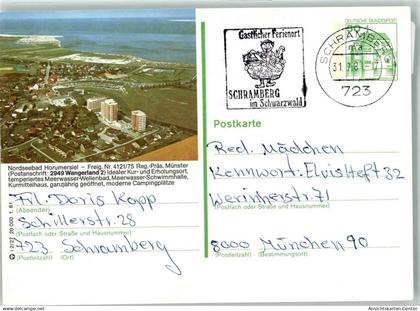 Gastlicher Ferienort
SCHRAMBERG
im Schwarzwald
SCHRAMBERG 1
ma
723
DEUTSCHE BUNDESPOST
Nordseebad Horumersiel – Freig. Nr. 4121/75 Reg.-Präs. Münster
(Postanschrift: 2949 Wangerland 2) Idealer Kur- und Erholungsort,
temperiertes Meerwasser-Wellenbad, Meerwasser-Schwimmhalle,
Kurmittelhaus, ganzjährig geöffnet, moderne Campingplätze
Frl. Doris Kopp
(Absender)
Schillerstr. 28
(Postfach oder Straße und Hausnummer)
723 Schramberg
(Postleitzahl) (Ort)
Postkarte
Red. Mädchen
Kennwort: Elvisheft 32
Werinherstr. 71
(Postfach oder Straße und Hausnummer)
8000 München 90
(Postleitzahl) (Bestimmungsort)
delcampe.net
Ansichtskarten-Center